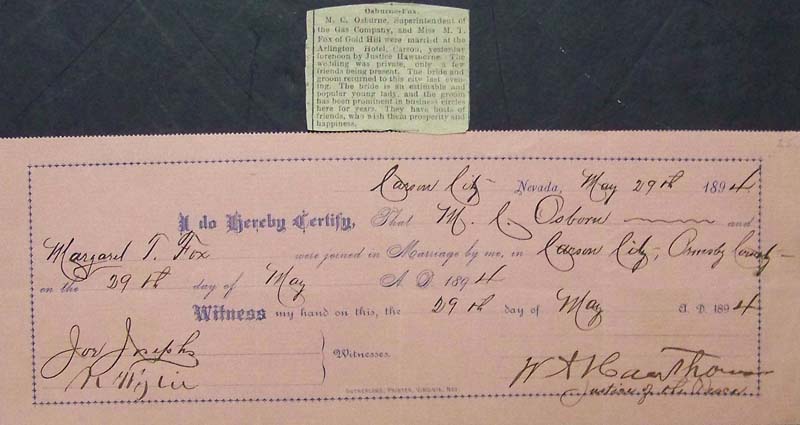 Osburne-Fox.
M. C. Osburne, Superintendent of
the Gas Company, and Miss M. T.
Fox of Gold Hill were married at the
Arlington Hotel, Carson, yesterday
forenoon by Justice Hawthorne. The
wedding was private, only a few
friends being present. The bride and
groom returned to this city last even-
ing. The bride is an estimable and
popular young lady, and the groom
has been prominent in business circles
here for years. They have hosts of
friends, who wish them prosperity and
happiness.
Carson City Nevada, May 29th 1894
I do Hereby Certify, That M. C. Osborn and
Margaret T. Fox were joined in Marriage by me, in Carson City, Ormsby County
on the 29th day of May A. D. 1894
Witness my hand on this, the 29th day of May A. D. 1894
Joe Josephs
Witnesses.
W A Hawthorne
Justice of the Peace
SUTHERLAND, PRINTER, VIRGINIA, NEV.